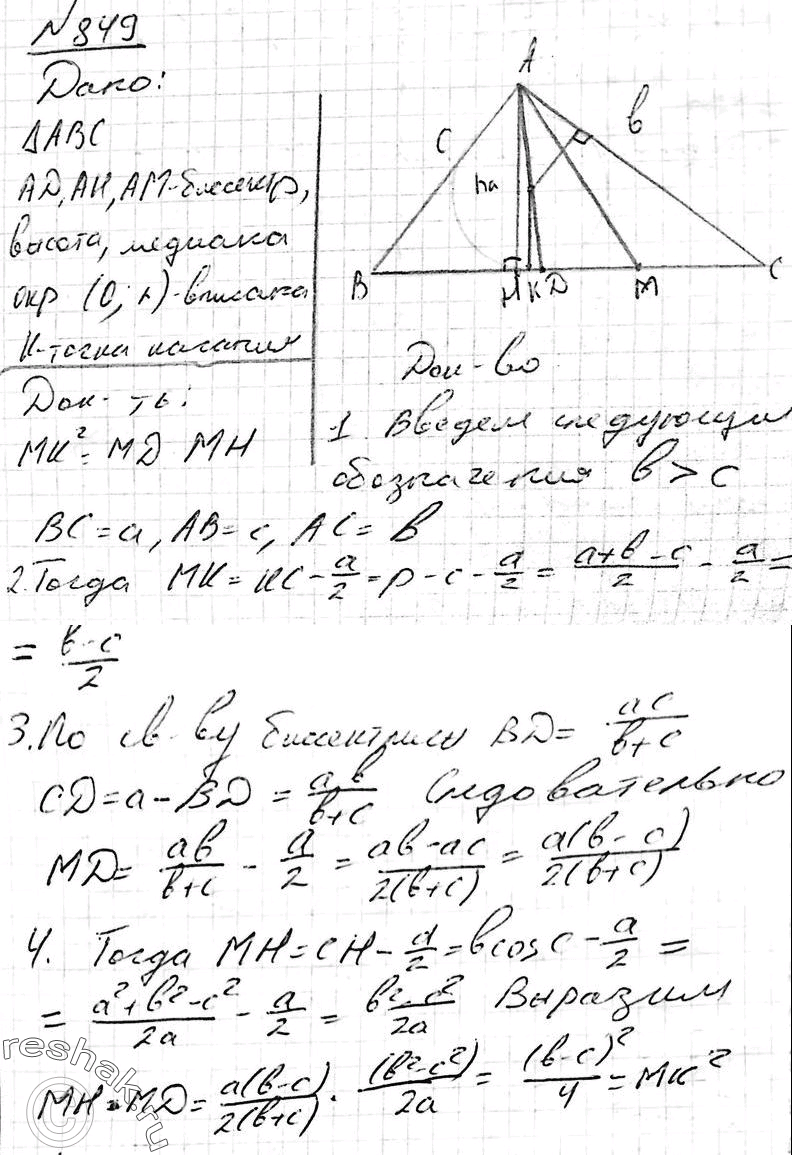 №849
Дано:
ΔABC
AD, AH, AM-биссектр,
высота, медиана
окр (O; r)-вписана
K-точка касания
Док-ть:
MK² = MD MH
A
C
b
ha
B
H K D
M
C
Док-во
1. Введем следующии
обозначения b > c
BC = a, AB = c, AC = b
2. Тогда MK = KC - a/2 = p - c - a/2 = (a+b-c)/2 - a/2 =
= (b-c)/2
3. По св-ву биссектрисы BD = ac/(b+c)
CD = a - BD = ab/(b+c) Следовательно
MD = ab/(b+c) - a/2 = (ab-ac)/(2(b+c)) = a(b-c)/(2(b+c))
4. Тогда MH = CH - a/2 = b cos C - a/2 =
= (a²+b²-c²)/2a - a/2 = (b²-c²)/2a Выразим
MH · MD = a(b-c)/(2(b+c)) · (b²-c²)/2a = (b-c)²/4 = MK²
reshak.ru
©